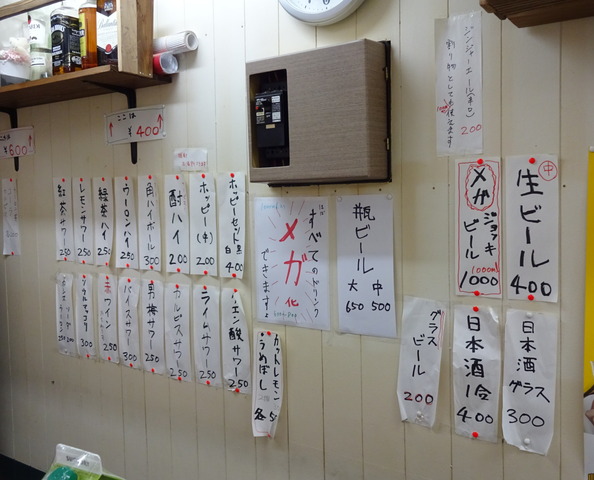 ここは
¥400
¥600
ジンジャーエール(辛口)
割り物としても使えます
200
紅茶サワー
250
レモンサワー
250
緑茶ハイ
250
ウーロンハイ
250
角ハイボール
300
酎ハイ
200
ホッピー(中)
200
ホッピーセット
白 黒
400
ほぼ
すべてのドリンク
メガ化
できますよ
瓶ビール
大 中
650 500
メガ
ジョッキ
ビール
1000ml
1000
生ビール
中
400
赤ワイン
250
バイスサワー
300
男梅サワー
250
カルピスサワー
250
ライムサワー
250
クエン酸サワー
250
カットレモン
うめぼし
各50
グラス
ビール
200
日本酒
1合
400
日本酒
グラス
300